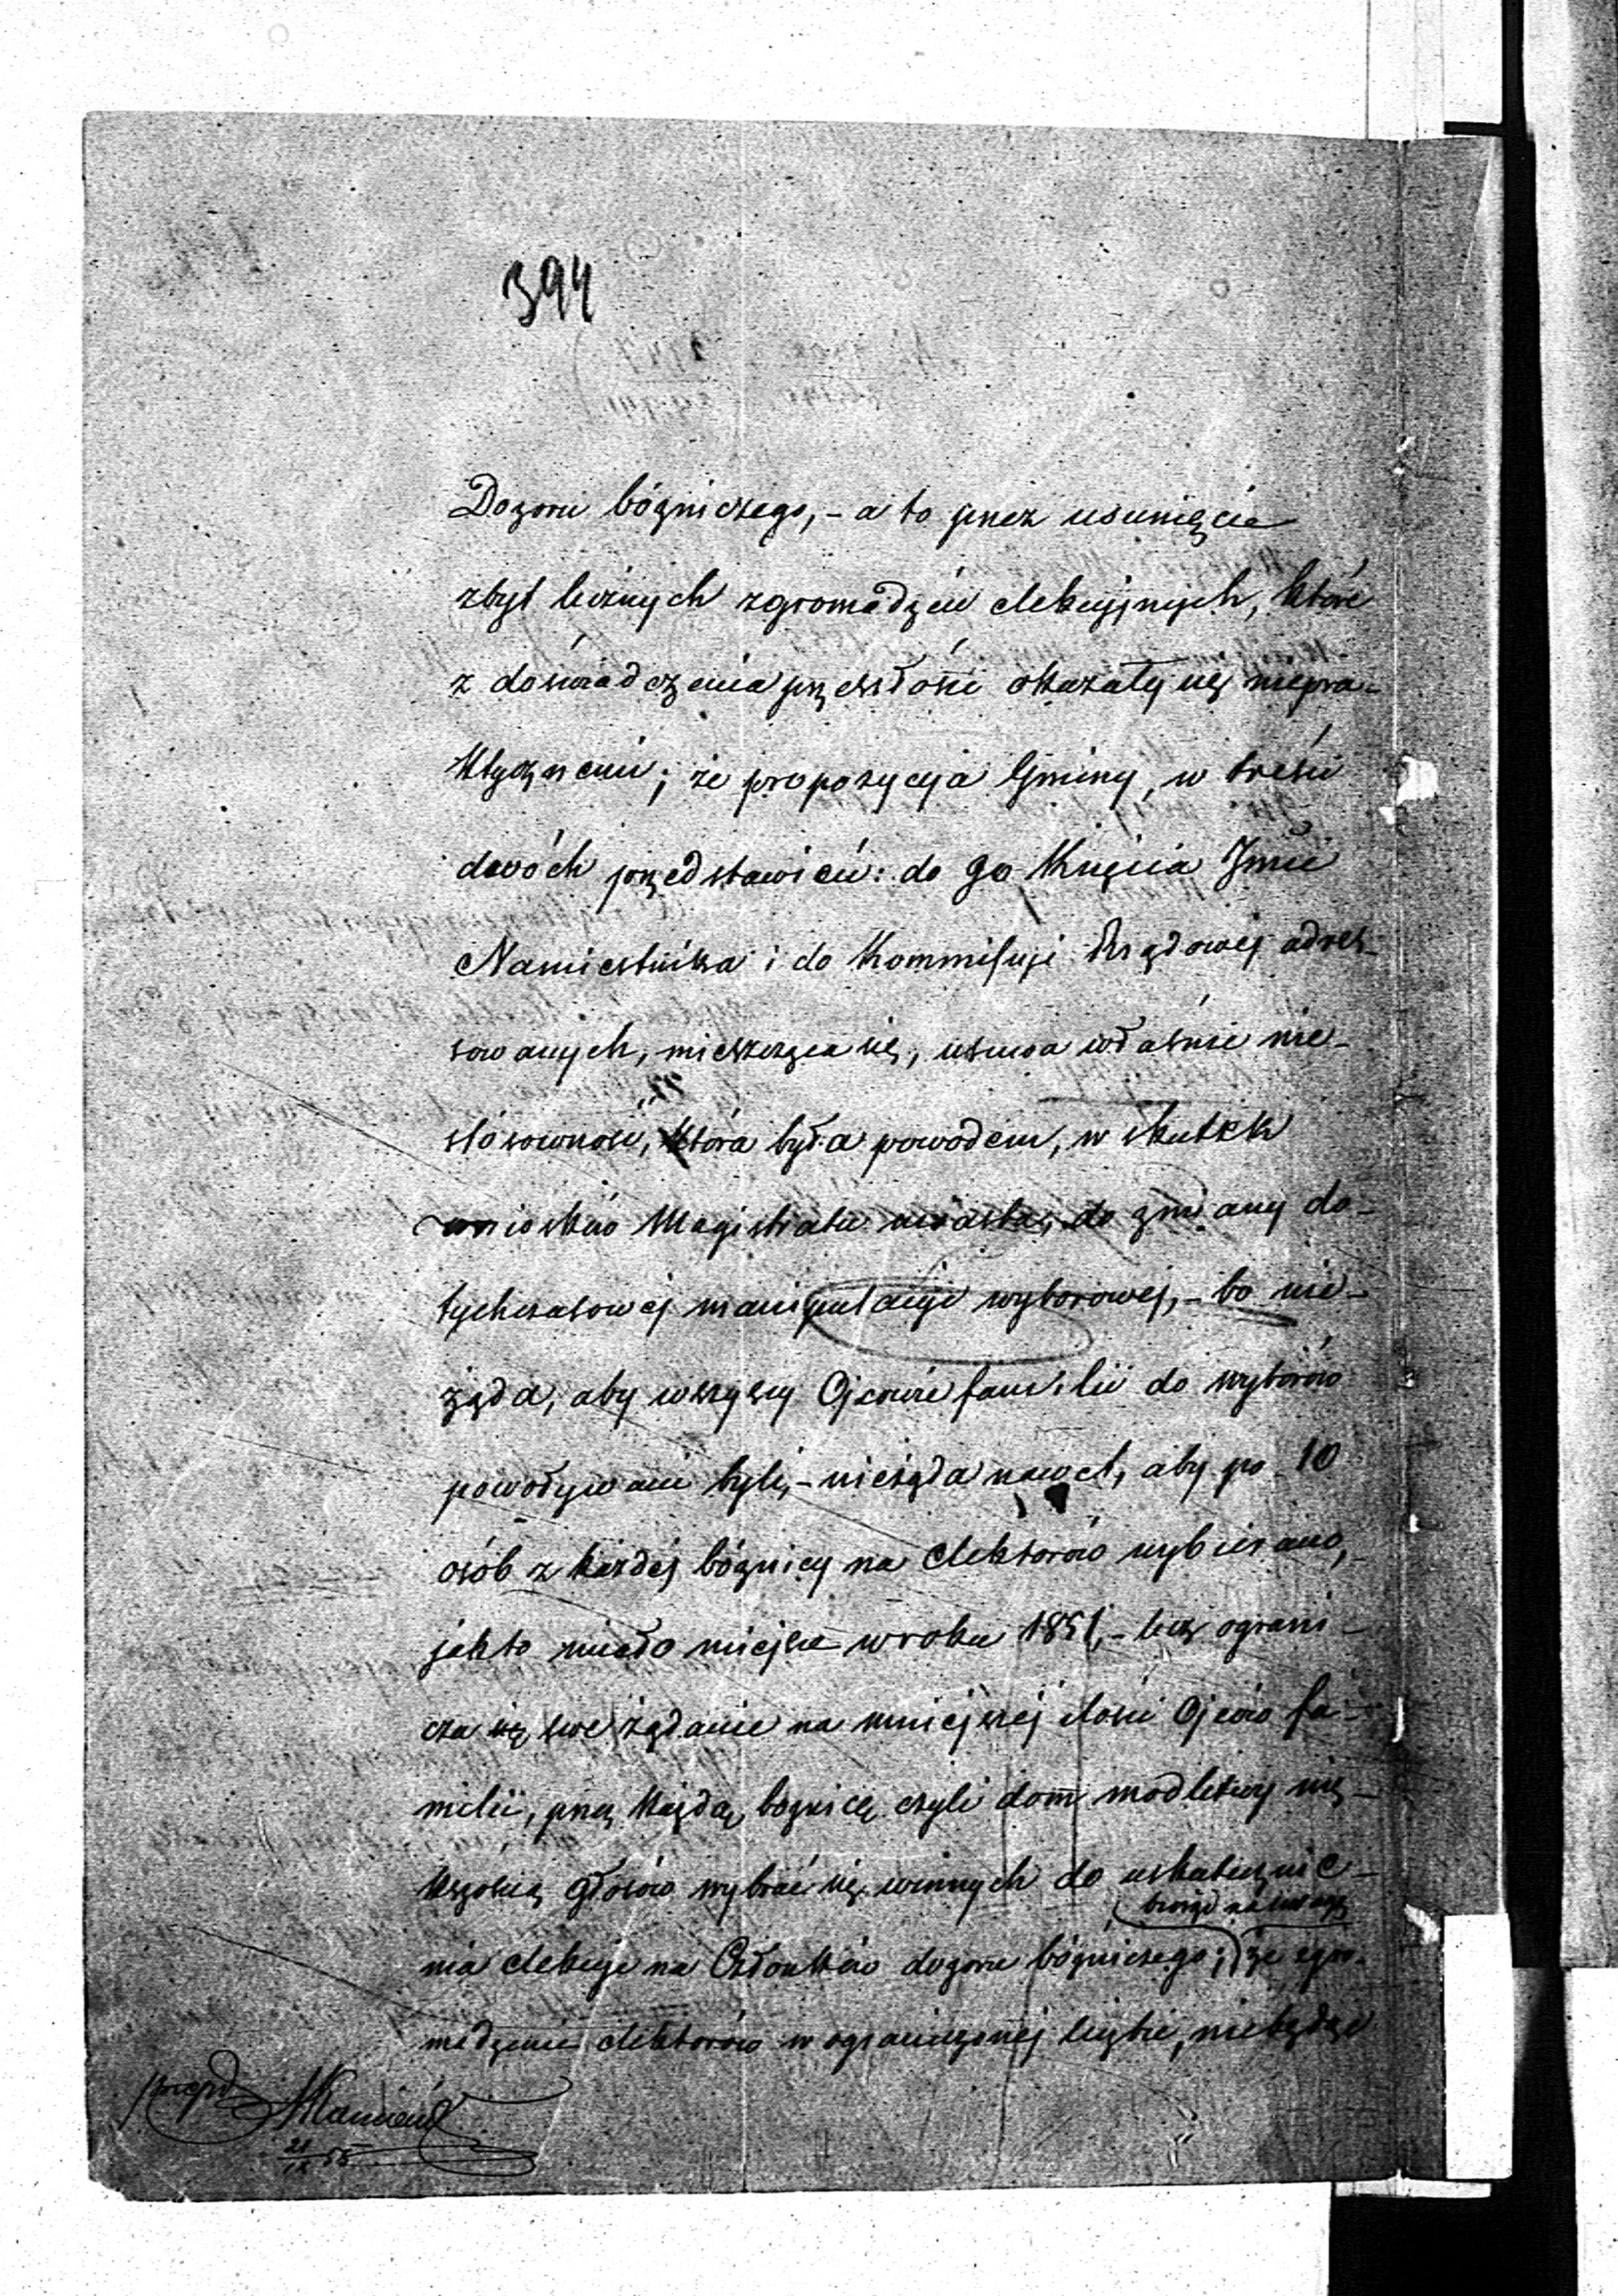 394
Dozoru bóżniczego, - a to przez usunięcie
zbyt licznych zgromadzeń elekcyjnych, które
z doświadczenia przeszłości okazały się niepra-
ktycznemi; że propozycyja Gminy, w treści
dwóch przedstawień: do Księcia Jmci
Namiestnika i do Kommissyi Rządowej adres-
sowanych, mieszcząca się, usuwa właśnie nie-
stósowność, która była powodem, w skutek
wniosków Magistratu miasta, do zmiany do-
tychczasowej manipulacyi wyborowej, - bo nie-
żąda, aby wszyscy Ojcowie familii do wyborów
powoływani byli, - nieżąda nawet, aby po 10
osób z każdej bóżnicy na elektorów wybierano,
jak to miało miejsce w roku 1851, - lecz ograni-
cza swe żądanie na mniejszej ilości Ojców fa-
milii, przez każdą bożnicę czyli dom modlitwy wię-
kszością głosów wybrać się winnych do uskutecznie-
biorąc na uwagę
nia elekcyi na Członków dozoru bóżniczego; że zgro-
madzenie elektorów w ograniczonej liczbie, niebędzie
21/IX 55